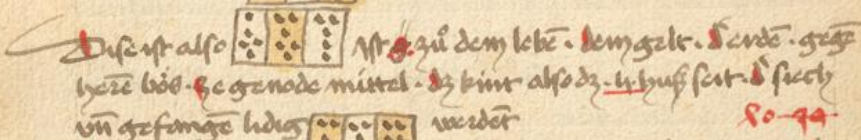 Dise ist also ist g. zů dem lebē. dem gelt. d̕ erdē. gegē
herē bös. ze genode mittel. dz kint also dz. hus seit. d̕ siech
vn̄ gefange lidig werdēt